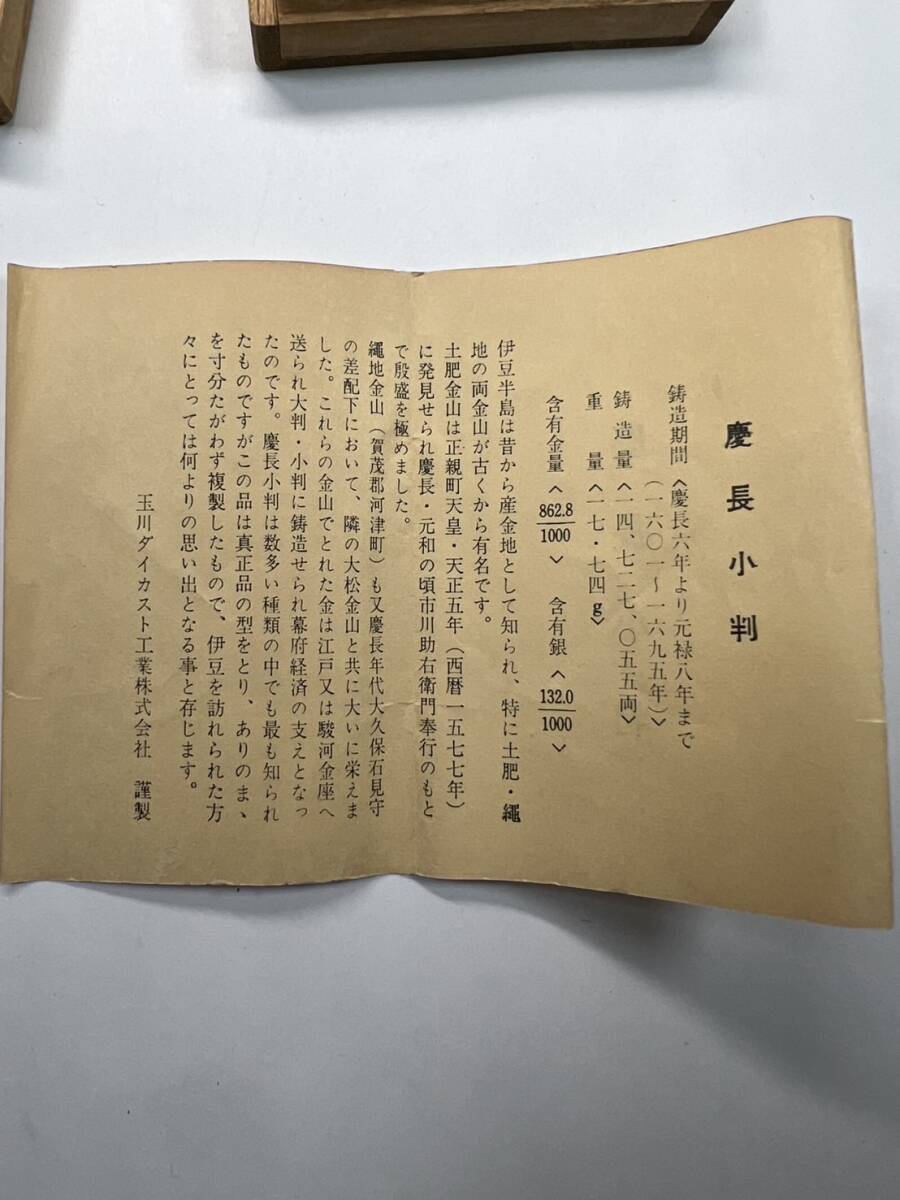 慶長小判
鋳造期間〈慶長六年より元禄八年まで
(一六〇一～一六九五年)〉
鋳造量〈一四、七二七、〇五五両〉
重量〈一七・七四g〉
含有金量〈862.8/1000〉 含有銀〈132.0/1000〉
伊豆半島は昔から産金地として知られ、特に土肥・縄
地の両金山が古くから有名です。
土肥金山は正親町天皇・天正五年(西暦一五七七年)
に発見せられ慶長・元和の頃市川助右衛門奉行のもと
で殷盛を極めました。
縄地金山(賀茂郡河津町)も又慶長年代大久保石見守
の差配下において、隣の大松金山と共に大いに栄えま
した。これらの金山でとれた金は江戸又は駿河金座へ
送られ大判・小判に鋳造せられ幕府経済の支えとなっ
たのです。慶長小判は数多い種類の中でも最も知られ
たものですがこの品は真正品の型をとり、ありのまゝ
を寸分たがわず複製したもので、伊豆を訪れられた方
々にとっては何よりの思い出となる事と存じます。
玉川ダイカスト工業株式会社 謹製